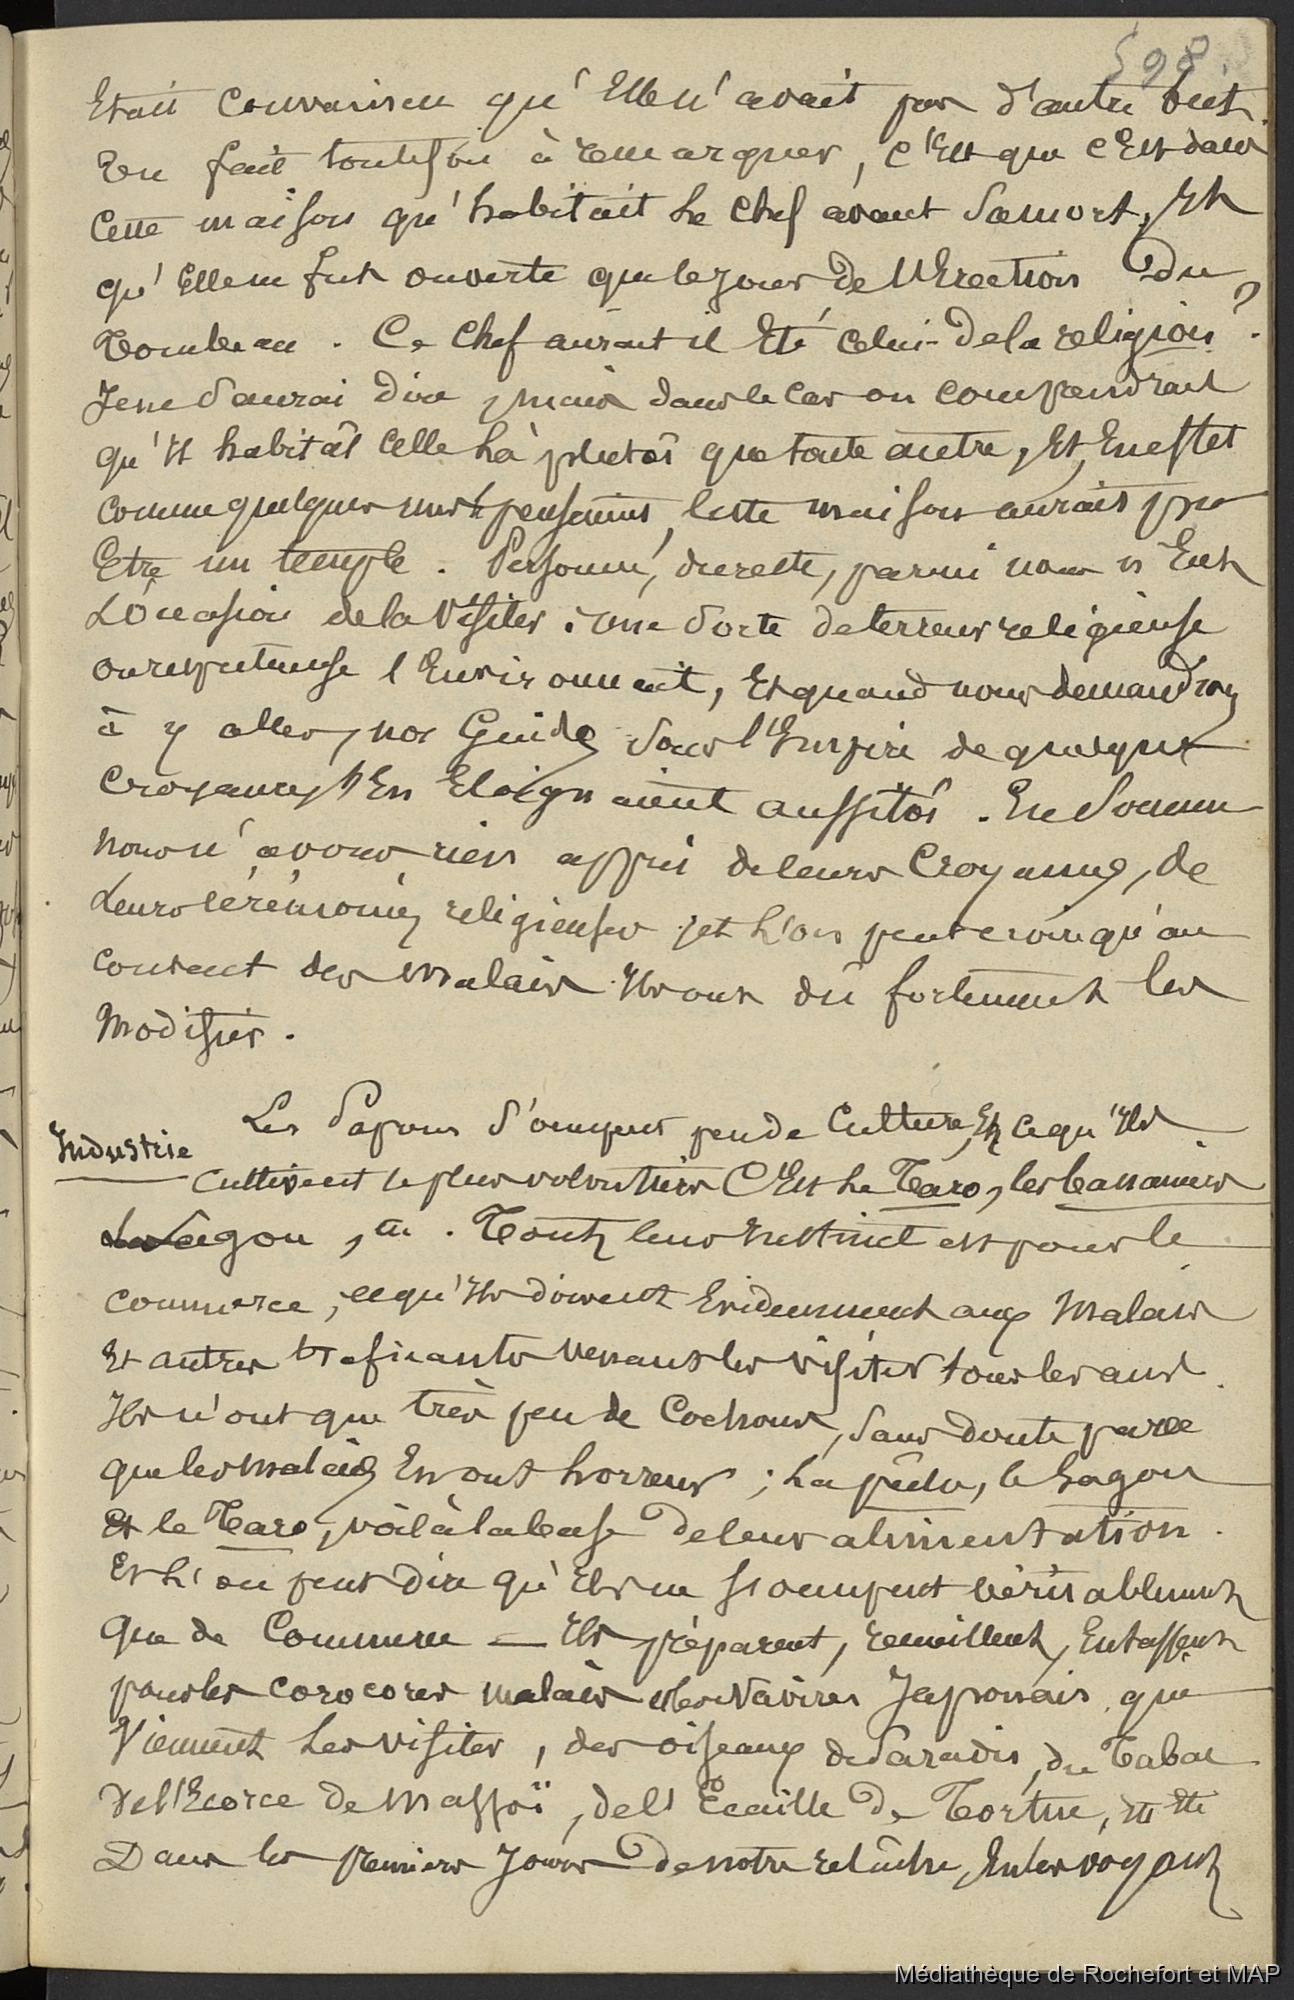 598.
Etait convaincu qu'Elle n'avait pas d'autre but.
Un fait toutefois à remarquer, c'Est que c'Est dans
Cette maison qu'habitait Le Chef avant Sa mort, Et
qu'Elle ne fut ouverte que le jour de l'Erection du
Tombeau. Ce Chef aurait il Eté celui-De la religion ?
Je ne Saurai Dire, mais dans le cas on comprendrait
qu'Il habitât Celle Là plutôt que toute autre, Et, En effet
comme quelques uns le pensaient, Cette maison aurait pu
Etre un temple. Personne, du reste, parmi nous n'Eut
L'Occasion de la Visiter. une Sorte de terreur religieuse
ou respectueuse l'Environnait, Et quand nous demandions
à y aller, nos Guides Sous l'Empire de quelques
Croyances, s'En Eloignaient aussitôt. En Somme
nous n'avons rien appris de leurs Croyances, de
Leurs Cérémonies religieuses, et L'on peut croire qu'au
Contact des Malais Ils ont dû fortement les
Modifier.
Les Papous S'occupent peu de Culture, Et ce qu'Ils
Industrie
cultivent le plus volontiers C'Est Le Taro, les bananiers
Le Sagou, etc. Tout leur instinct est pour le
commerce, ce qu'Ils doivent Evidemment aux Malais
Et autres trafiquants venant les visiter tous les ans.
Ils n'ont que très peu de Cochons, Sans doute parce
que les Malais En ont horreur ; La pêche, le Sagou
Et le Taro, voilà la base De leur alimentation.
Et L'on peut Dire qu'Ils ne s'occupent véritablement
Que de Commerce — Ils préparent, recueillent, Entassent
pour les corocores malais et les Navires Japonais qui
Viennent Les visiter, des oiseaux de Paradis, du Tabac
De l'Ecorce de Massoï, de l'Ecaille De Tortue, etc etc
Dans les premiers Jours De notre relâche, En les voyant
Médiathèque de Rochefort et MAP